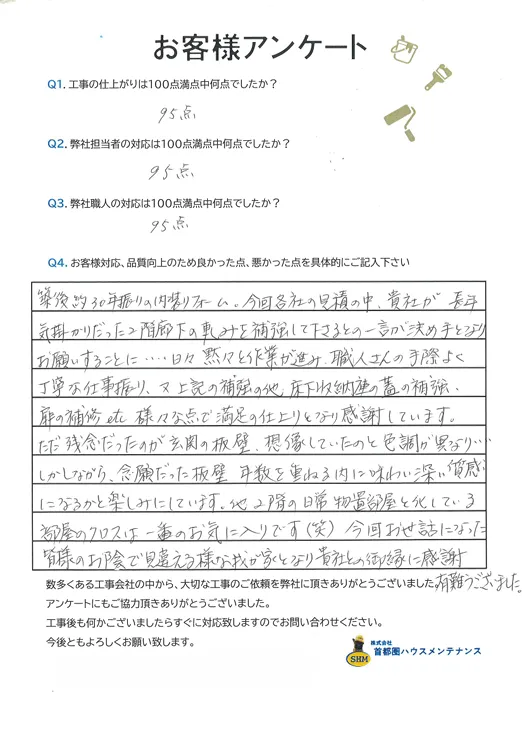 お客様アンケート
Q1. 工事の仕上がりは100点満点中何点でしたか？
95点
Q2. 弊社担当者の対応は100点満点中何点でしたか？
95点
Q3. 弊社職人の対応は100点満点中何点でしたか？
95点
Q4. お客様対応、品質向上のため良かった点、悪かった点を具体的にご記入下さい
築後約30年振りの内装リフォーム。今回各社の見積の中、貴社が 長年
気掛かりだった2階廊下の軋みを補強して下さるとの一言が決め手となり
お願いすることに‥‥日々 黙々と作業が進み、職人さんの手際よく
丁寧な仕事振り、又上記の補強の他、床下収納庫の蓋の補強、
扉の補修 etc 様々な点で満足の仕上りとなり感謝しています。
ただ 残念だったのが玄関の板壁、想像していたのと色調が異なり‥‥
しかしながら、念願だった板壁 年数を重ねる内に味わい深い質感
になるかと楽しみにしています。他 2階の日常物置部屋と化している
部屋のクロスは一番のお気に入りです(笑) 今回お世話になった
皆様のお陰で見違える様な我が家となり貴社との御縁に感謝
有難うございました。
数多くある工事会社の中から、大切な工事のご依頼を弊社に頂きありがとうございました。
アンケートにもご協力頂きありがとうございました。
工事後も何かございましたらすぐに対応致しますのでお問い合わせください。
今後ともよろしくお願い致します。
SHM
株式会社
首都圏ハウスメンテナンス